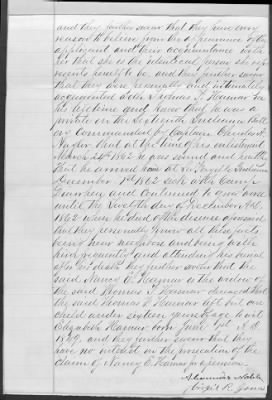 and they further swear that they have every
reason to believe from the appearance of the
applicant and their acquaintance with
her that she is the identical person she rep
resents herself to be, and they further swear
that they were personally and intimately
acquainted with Thomas F. Hamar in
his lifetime and know that he was a
private in the Sixteenth Indiana Batt
ery Commanded by Captain Charles A.
Naylor that at the time of his enlistment
March 24th 1862 he was sound and healthy
that he arrived home at Indiana
December 1st 1862 sick with Camp
and continued to grow worse
until the Twelfth day of December A.D.
1862 when he died of the disease aforesaid
that they personally know all these facts
being near neighbors and being with
him frequently and attended his funeral
after his death they further swear that the
said Nancy C. Hamar is the widow of
the said Thomas F. Hamar deceased that
the said Thomas F. Hamar left but one
child under sixteen years of age to wit
Elizabeth Hamar born June A.D.
1859. and they further swear that they
have no interest in the prosecution of the
claim of Nancy C. Hamar for a pension.
Virgil R. Jones